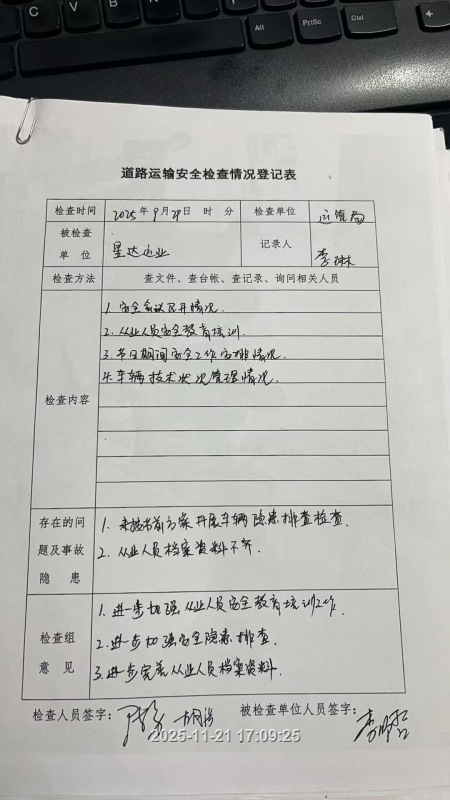 C V B N M
Alt PrtSc Ctrl
道路运输安全检查情况登记表
检查时间 2025年9月29日 时 分 检查单位 运管局
被检查单位 星达运业 记录人 李琳
检查方法 查文件、查台帐、查记录、询问相关人员
检查内容
1. 安全会议召开情况.
2. 从业人员安全教育培训.
3. 节日期间安全工作安排情况.
4. 车辆技术状况管理情况.
存在的问题及事故隐患
1. 未按当前方案开展车辆隐患排查检查.
2. 从业人员档案资料不齐.
检查组意见
1. 进一步加强从业人员安全教育培训工作.
2. 进一步加强安全隐患排查.
3. 进一步完善从业人员档案资料.
检查人员签字: 被检查单位人员签字:
2025-11-21 17:09:25